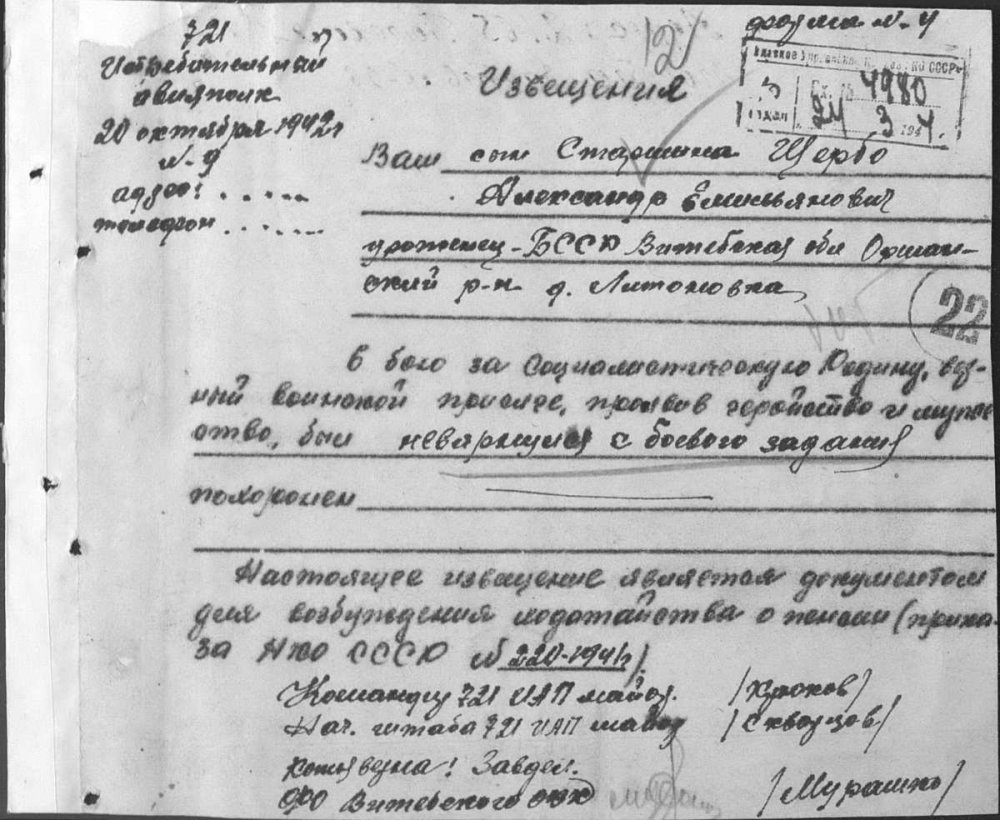 форма N. 4
721
Истребительный
авиаполк
20 октября 1942г
N. 9
адрес: . . . . .
телефон . . . . . .
Извещения
Вх. № 4980
3 отдел 24 3 194 4.
Ваш сын Старшина Щербо
Александр Емильянович
уроженец - БССР Витебская обл Оршан-
ский р-н д. Антоновка
22
В бою за социалистическую Родину, вер-
ный воинской присяге, проявив геройство и муже
ство, был невярнулся с боевого задания
похоронен
Настоящее извещение является документом
для возбуждения ходотайства о пенсии (прика-
за НКО СССР N 220-1941г)
Командир 721 ИАП майор. /Крюков/
Нач. штаба 721 ИАП майор /Скворцов/
Копия верна! Завдел.
ФО Витебского /Мурашко/